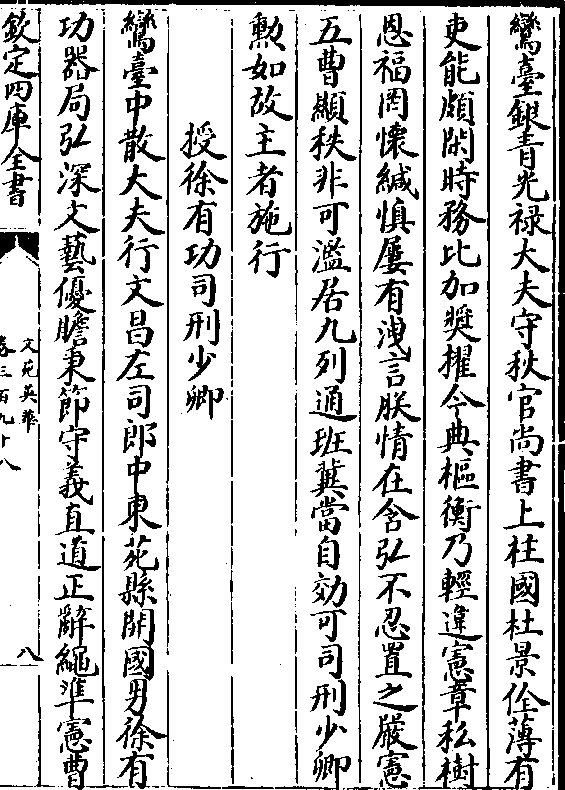 鸞臺銀青光禄大夫守秋官尚書上柱國杜景佺薄有
吏能頗閑時務比加奬擢令典樞衡乃輕違憲章私樹
恩福罔懐緘慎屢有洩言朕情在含弘不忍置之嚴憲
五曹顯秩非可濫居九列通班冀當自効可司刑少卿
勲如故主者施行
授徐有功司刑少卿
鸞臺中散大夫行文昌左司郎中東莞縣開國男徐有
功器局弘深文藝優贍秉節守義直道正辭繩準憲曹
欽定四庫全書
文苑英華
卷三百九十八
八